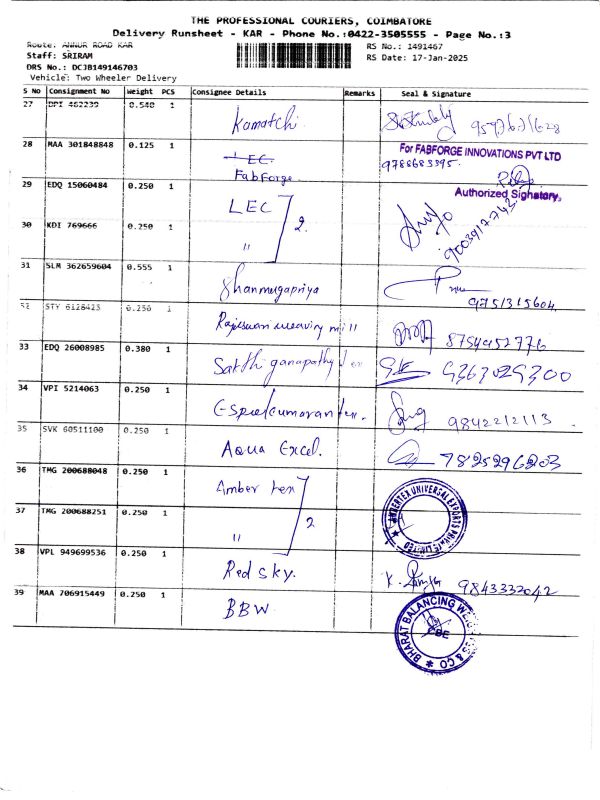 THE PROFESSIONAL COURIERS, COIMBATORE
Delivery Runsheet - KAR - Phone No.:0422-3505555 - Page No.:3
Route: ANNUR ROAD KAR
RS No.: 1491467
Staff: SRIRAM
RS Date: 17-Jan-2025
DRS No.: DCJB149146703
Vehicle: Two Wheeler Delivery
S No Consignment No Weight PCS Consignee Details Remarks Seal & Signature
27 DPI 462239 0.540 1 Kamatchi
28 MAA 301848848 0.125 1 LEC Fabforge For FABFORGE INNOVATIONS PVT LTD
9788683395
Authorized Signatory
29 EDQ 15060484 0.250 1 LEC 2
30 KDI 769666 0.250 1 " 9003917743
31 SLM 362659604 0.555 1 Shanmugapriya 9751315604
32 STY 6128423 0.250 1 Rajeswari weaving mill 8754952776
33 EDQ 26008985 0.380 1 Sakthi ganapathy tex 9363029300
34 VPI 5214063 0.250 1 9842212113
35 SVK 60511100 0.250 1 Aqua Excel. 7825296203
36 TMG 200688048 0.250 1 Amber tex 2
37 TMG 200688251 0.250 1 "
38 VPL 949699536 0.250 1 Red sky. 9843332042
39 MAA 706915449 0.250 1 BBW